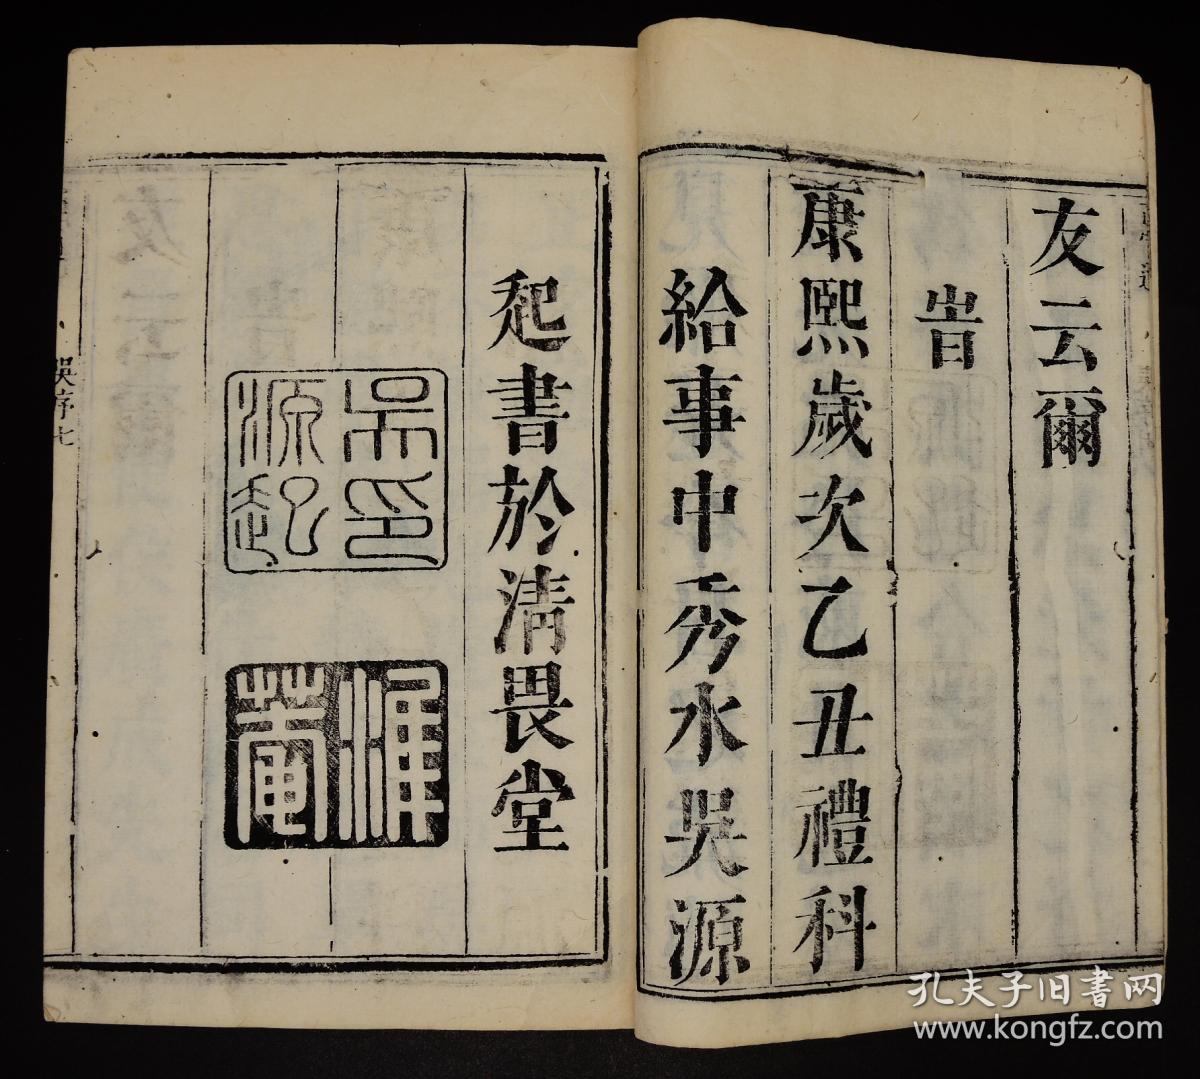 友云爾
旹
康熙歲次乙丑禮科
給事中秀水吳源
起書於清畏堂
吳印源起
准菴
吳序七
孔夫子旧书网
www.kongfz.com